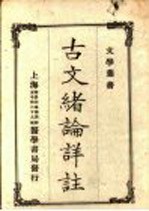 文學叢書
古文緒論詳註
上海
醫學書局發行